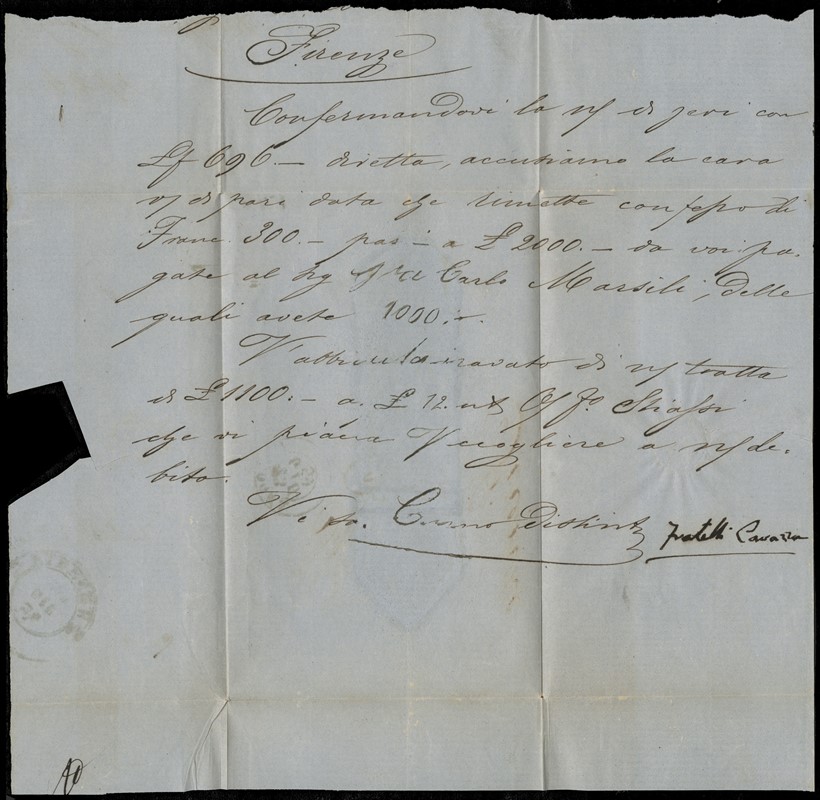 Firenze
Confermandovi la n/ di jeri con
£f 696.— diretta, accusiamo la cara
v/ di pari data che rimette con foppo di
Franc. 300.— pas — a £ 2000.— da voi pa-
gate al Sig Carlo Marsili, delle
quali avete 1000.—.
di n/ tratta
di £ 1100.— a. £ 12. O/ Fo. Stiassi
che vi piacera accogliere a n/ de-
bito.
Vi sa. Distint
Fratelli Cavazza